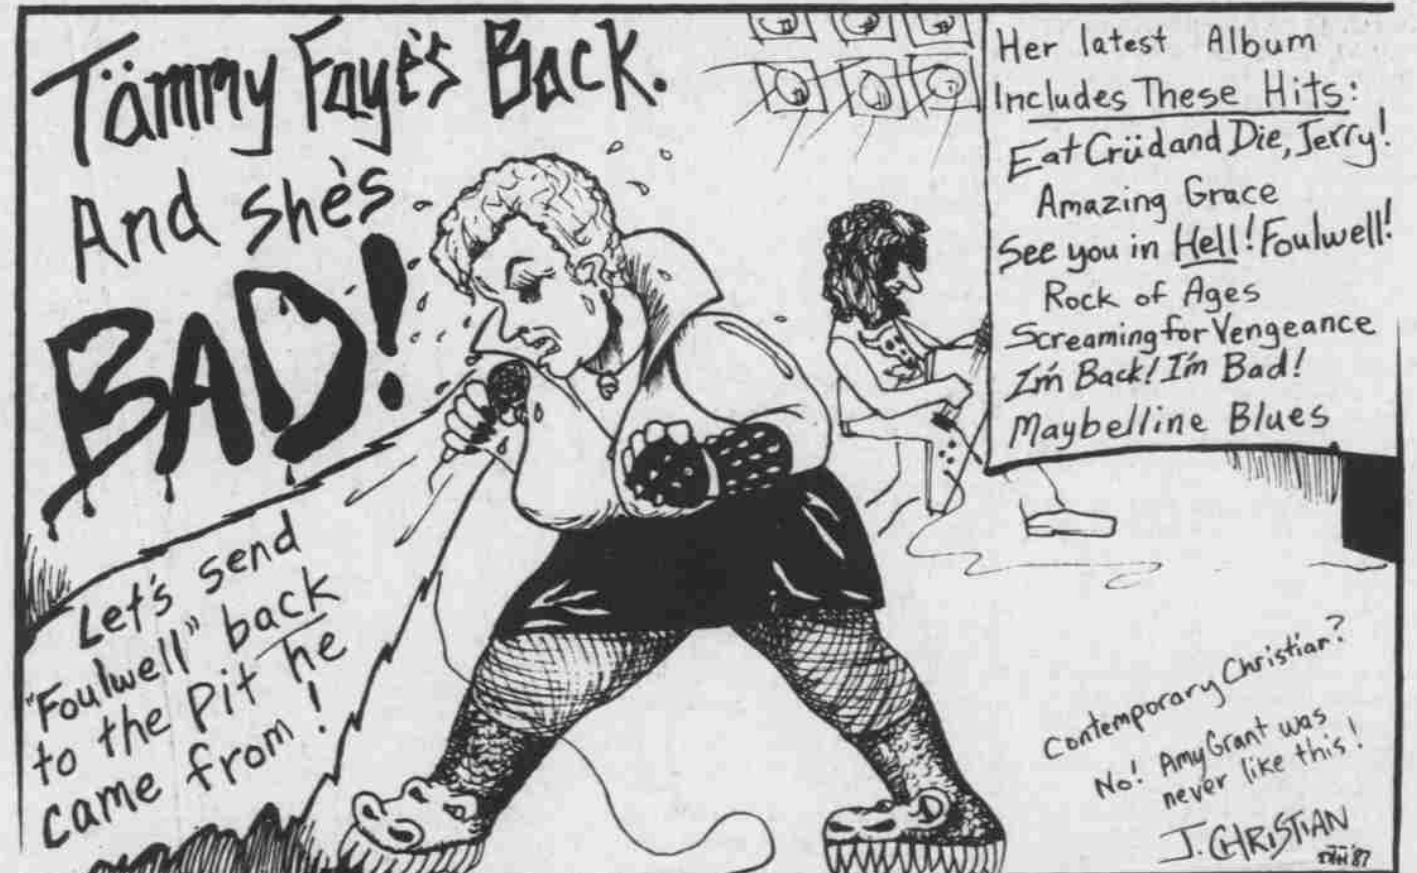 Tämmy Faye's Back.
And she's
BAD!
Let's send
"Foulwell" back
to the Pit he
came from!
Her latest Album
Includes These Hits:
Eat Crüd and Die, Jerry!
Amazing Grace
See you in Hell! Foulwell!
Rock of Ages
Screaming for Vengeance
I'm Back! I'm Bad!
Maybelline Blues
Contemporary Christian?
No! Amy Grant was
never like this!
J. CHRISTIAN
'87